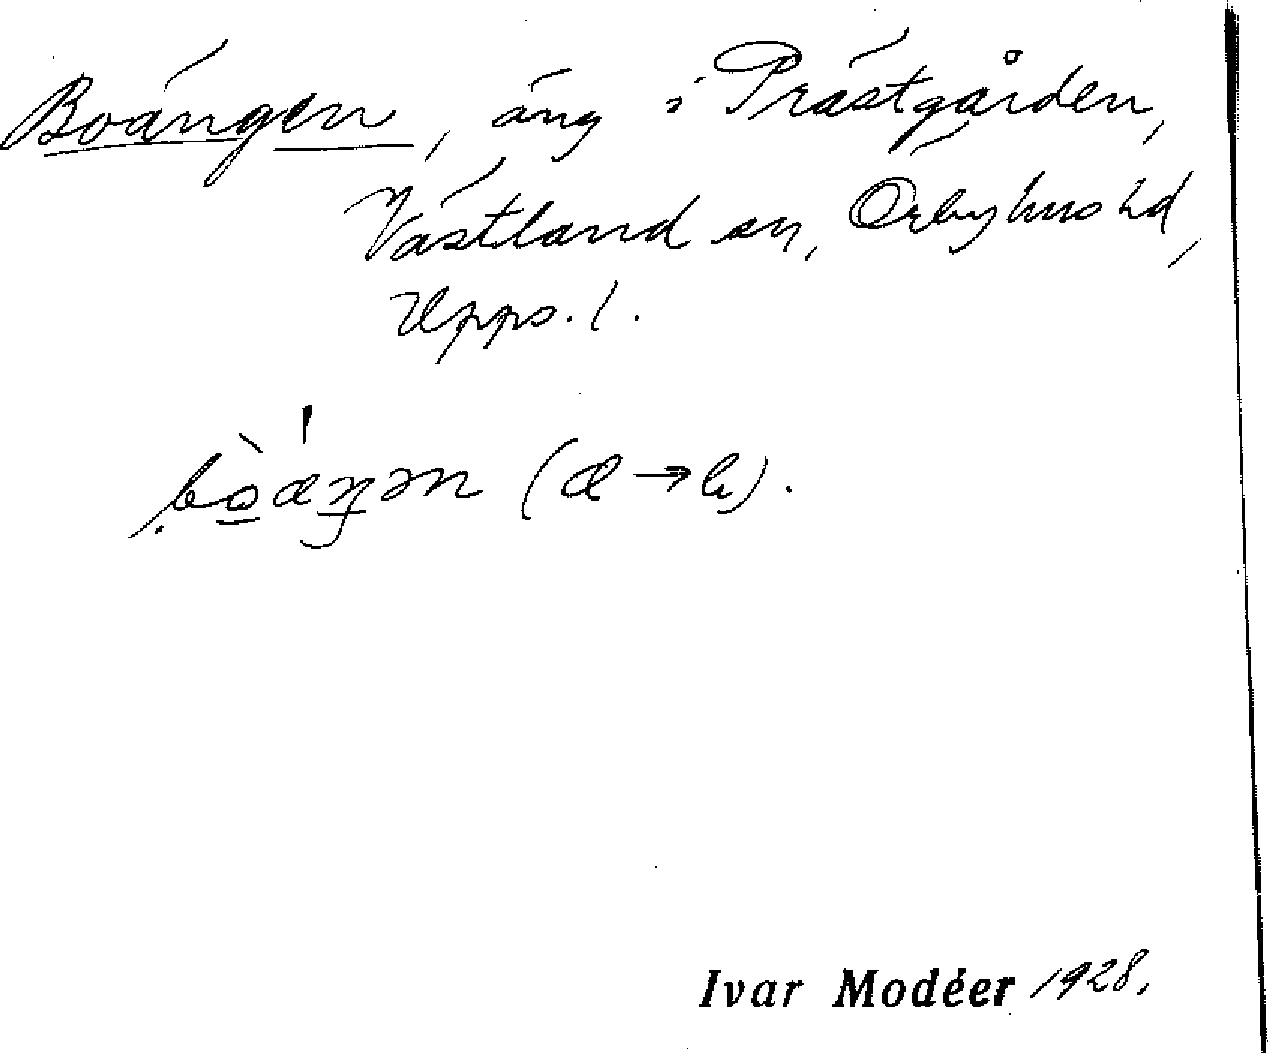 Boängen, äng i Prästgården,
Västland sn, Örbyhus hd,
Upps. l.
(æ → 
Ivar Modéer 1928.